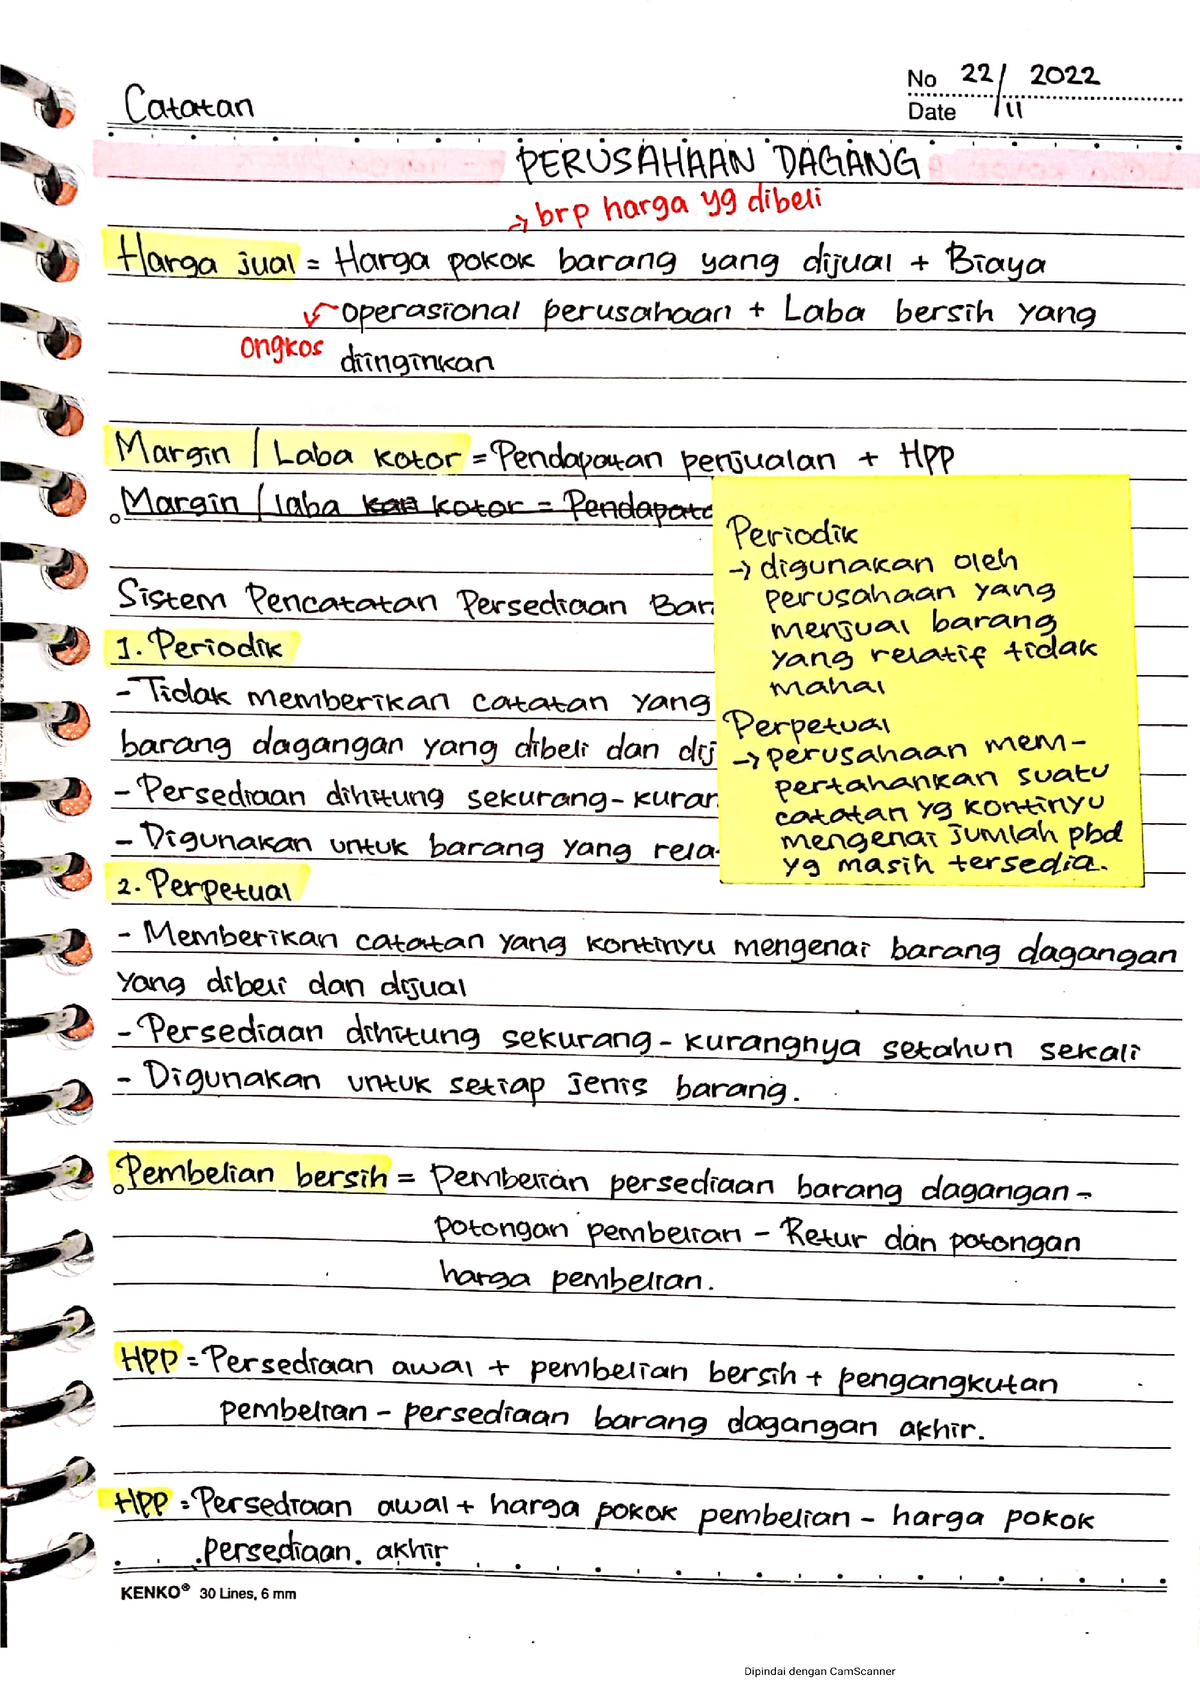 Catatan
No 22/ 2022
Date /11
PERUSAHAAN DAGANG
→ brp harga yg dibeli
Harga jual = Harga pokok barang yang dijual + Biaya
operasional perusahaan + Laba bersih yang
ongkos
diinginkan
Margin / Laba kotor = Pendapatan penjualan + HPP
Margin / laba kotor = Pendapata
Sistem Pencatatan Persediaan Bar
1. Periodik
- Tidak memberikan catatan yang
barang dagangan yang dibeli dan dij
- Persediaan dihitung sekurang-kuran
- Digunakan untuk barang yang rela
Periodik
→ digunakan oleh
perusahaan yang
menjual barang
yang relatif tidak
mahal
Perpetual
→ perusahaan mem-
pertahankan suatu
catatan yg kontinyu
mengenai jumlah pbd
yg masih tersedia.
2. Perpetual
- Memberikan catatan yang kontinyu mengenai barang dagangan
yang dibeli dan dijual
- Persediaan dihitung sekurang-kurangnya setahun sekali
- Digunakan untuk setiap jenis barang.
Pembelian bersih = Pembelian persediaan barang dagangan -
potongan pembelian - Retur dan potongan
harga pembelian.
HPP = Persediaan awal + pembelian bersih + pengangkutan
pembelian - persediaan barang dagangan akhir.
HPP = Persediaan awal + harga pokok pembelian - harga pokok
persediaan akhir
KENKO® 30 Lines, 6 mm
Dipindai dengan CamScanner